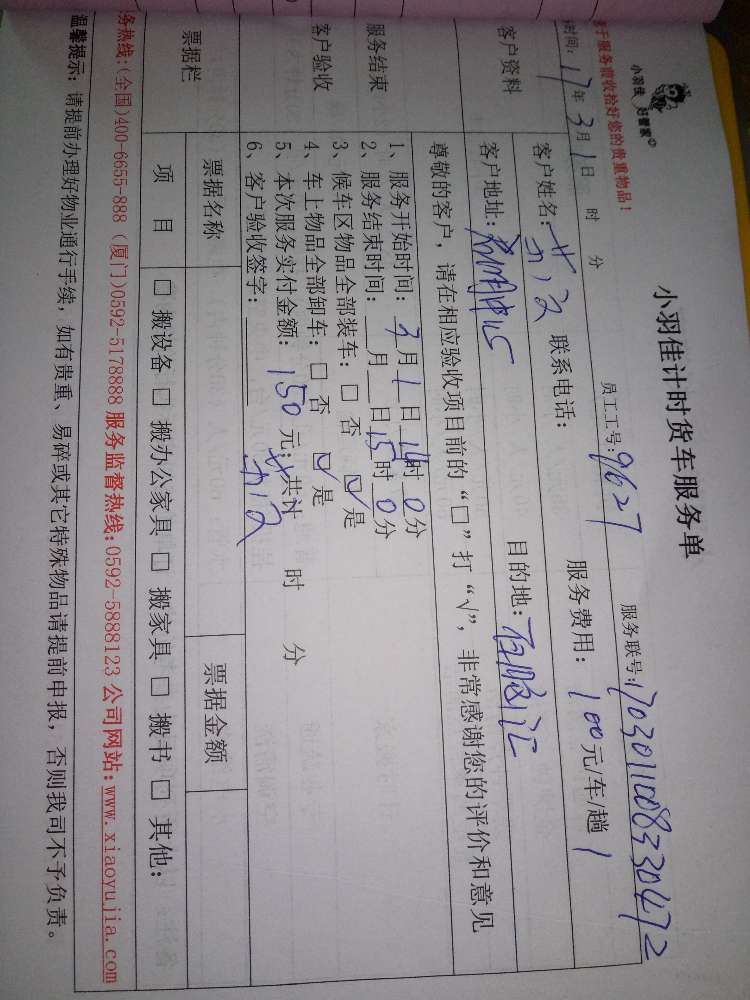 小羽佳 好管家
于服务前收拾好您的贵重物品！
小羽佳计时货车服务单
时间：17年3月1日 时 分 员工工号：9627 服务联号：170301100833 0472
客户资料
客户姓名： 联系电话： 服务费用：100元/车/趟 1
客户地址： 目的地：
尊敬的客户，请在相应验收项目前的“□”打“√”，非常感谢您的评价和意见
服务结束
客户验收
1、服务开始时间：3月1日14时0分
2、服务结束时间： 月 日15时0分
3、候车区物品全部装车：□ 否 ☑ 是
4、车上物品全部卸车：□ 否 ☑ 是
5、本次服务实付金额：150元；共计 时 分
6、客户验收签字：
票据栏
票据名称 票据金额
项 目 □ 搬设备 □ 搬办公家具 □ 搬家具 □ 搬书 □ 其他：
务热线：(全国)400-6655-888 (厦门)0592-5178888 服务监督热线：0592-5888123 公司网站：www.xiaoyujia.com
温馨提示：请提前办理好物业通行手续，如有贵重、易碎或其它特殊物品请提前申报，否则我司不予负责。